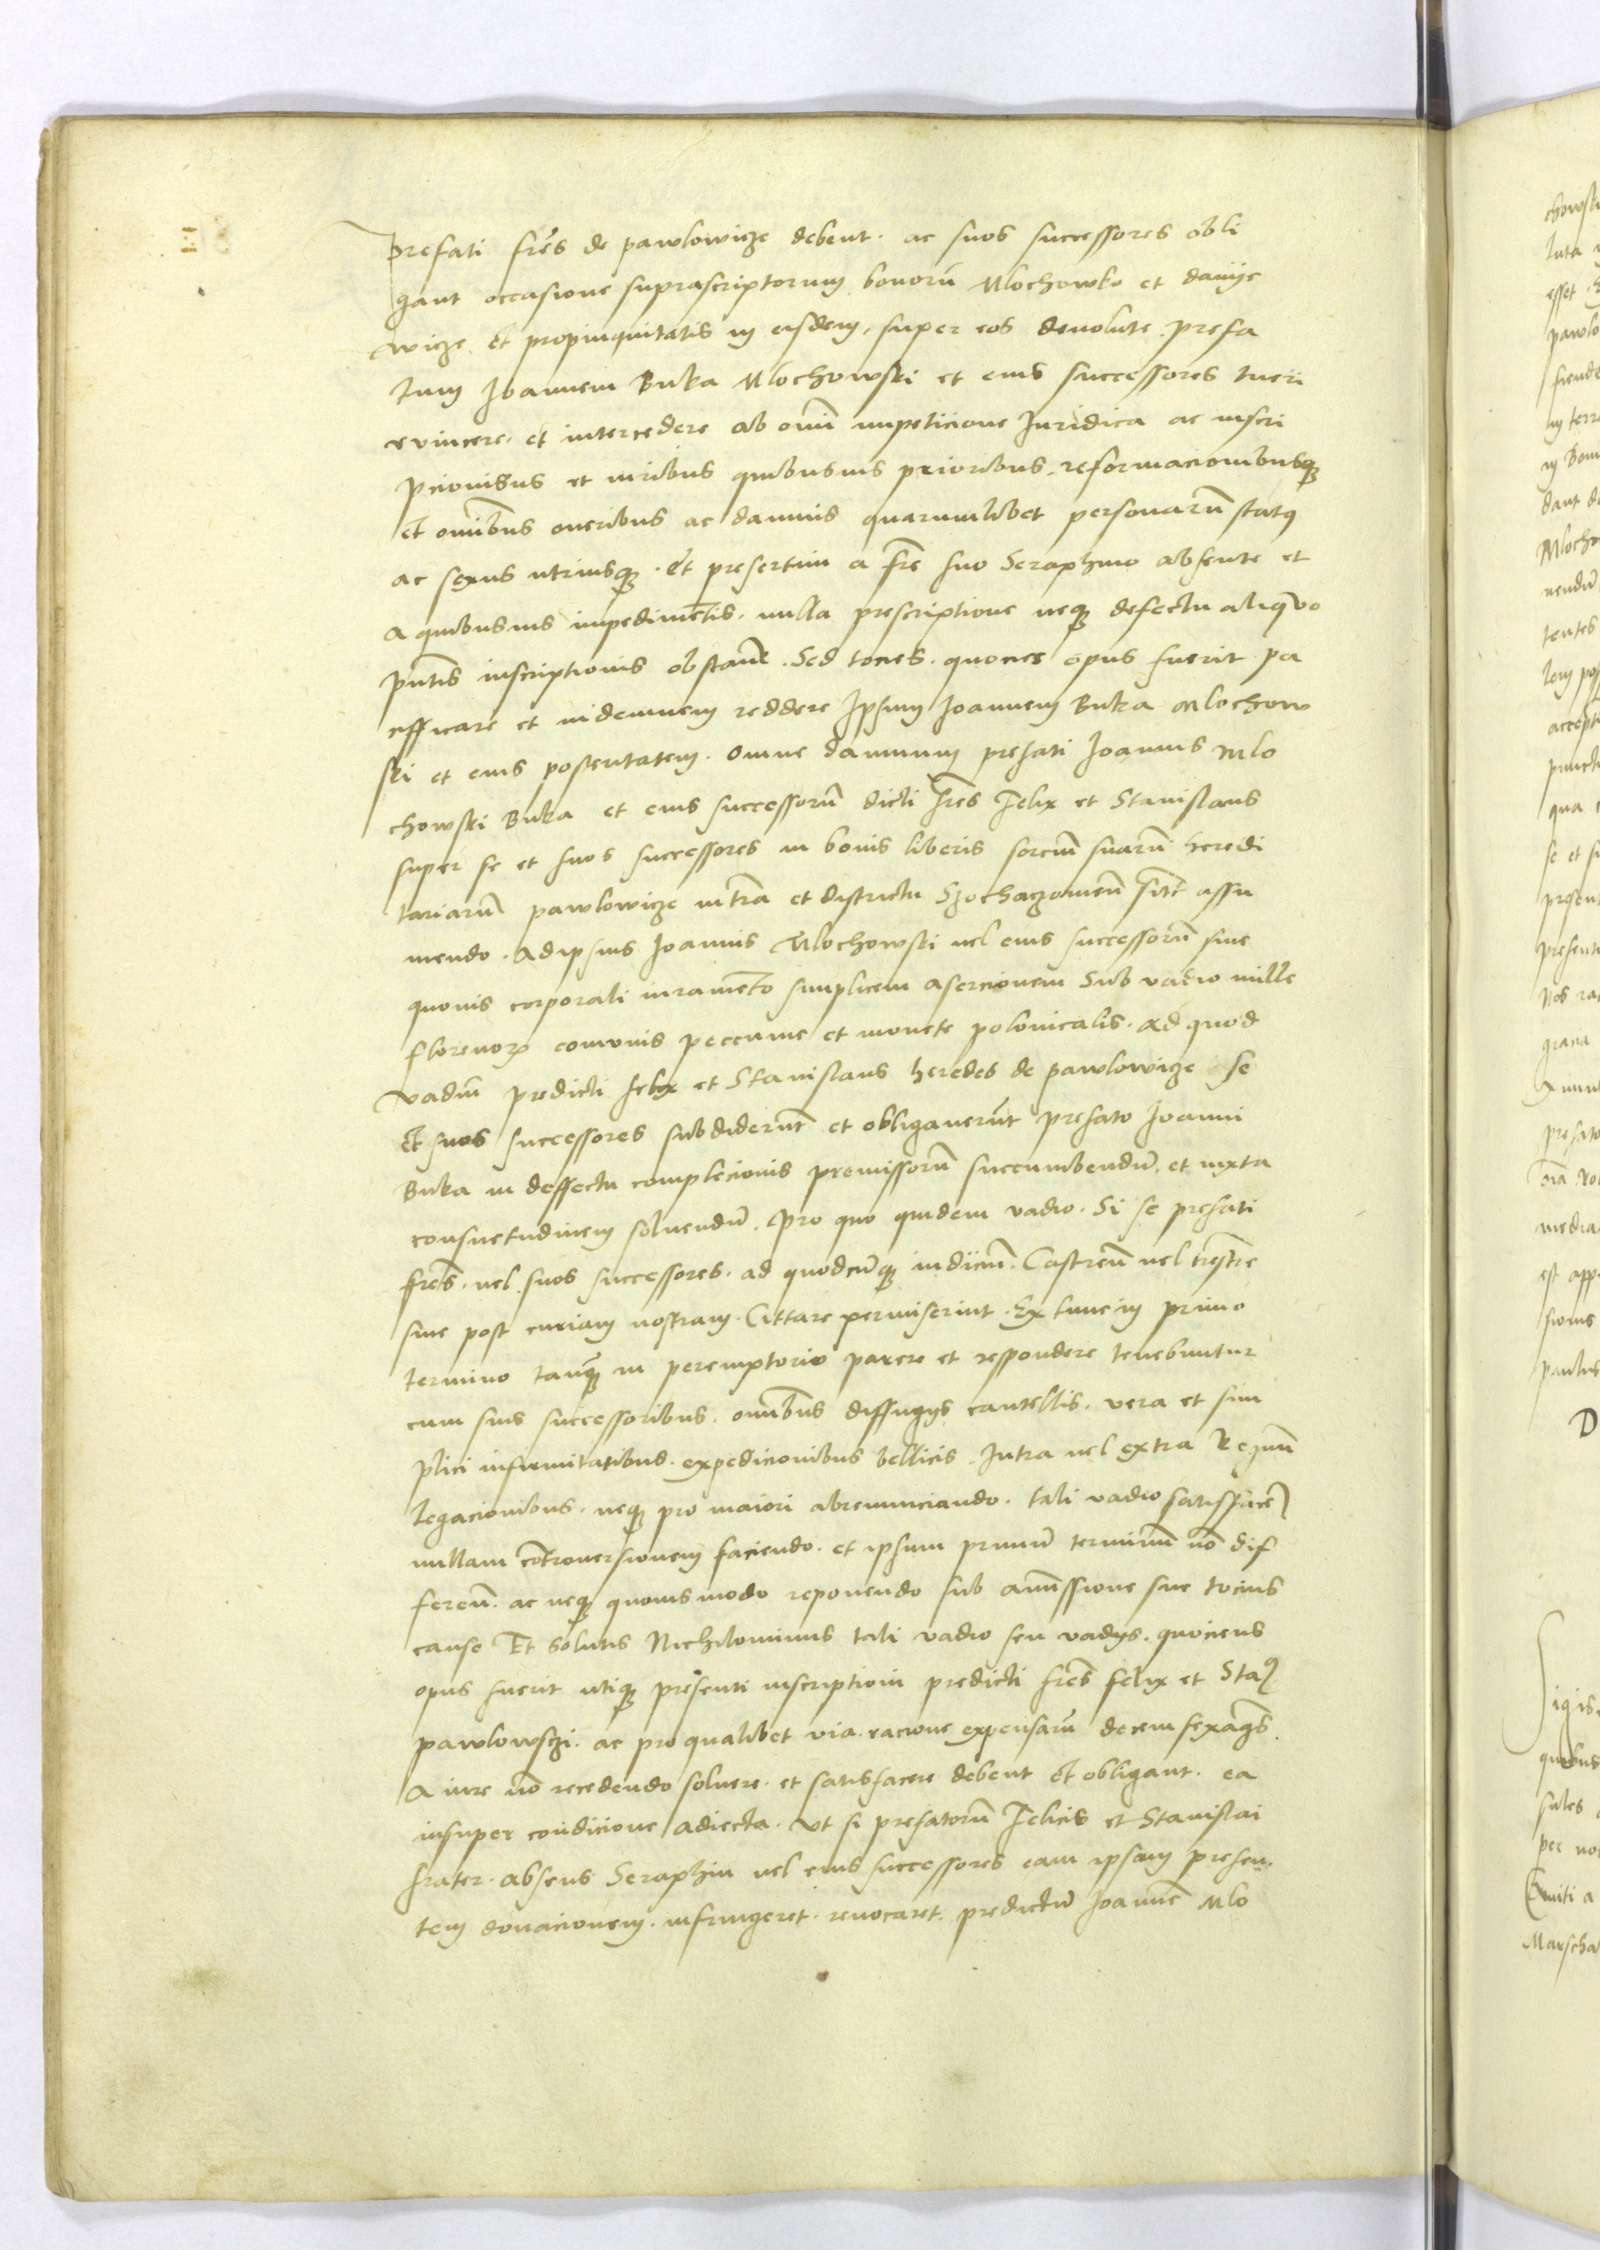 Prefati fres de pawlowicze debent. ac suos successores obli
gant occasione suprascriptorum bonoru Mlochowko et daniie
wicze et propinquitatis in eisdem, super eos devolute prefa
tum Joannem Buka Mlochowski et eius successores tueri
evincere. et intercedere ab omi impeticione Juridica ac inscri
pcionibus et iuribus quibusuis prioribus reformacionibusq
et omibus oneribus ac damnis quarumlibet personaru status
ac sexus utriusq. Et presertim a fre suo Seraphino absente et
a quibusuis impedimetis. nulla prescriptione neq defectu aliquo
pntis inscriptionis obstante. Sed tocies. quocies opus fuerit pa
cifficare et indemnem reddere Ipsum Joannem Buka Mlochow
ski et eius posteritatem. omne damnum prefati Joannis Mlo
chowski Buka et eius successoru dicti fres Felix et Stanislaus
super se et suos successores in bonis liberis sorcium suaru heredi
tariaru pawlowicze in tra et districtu Szochaczouien sitis assu
mendo. Ad ipsius Joannis Mlochowski uel eius successoru siue
quouis corporali iuramento simplicem asercionem Sub vadio mille
florenorum comunis peccunie et monete polonicalis. Ad quod
vadiu predicti Felix et Stanislaus heredes de pawlowicze se
et suos successores subdiderut et obligauerut prefato Joanni
Buka in deffectu complecionis premissoru succumbendu. et iuxta
consuetudinem soluendu. Pro quo quidem vadio. Si se prefati
fres. uel suos successores. ad quodcuq iudiciu. Castren uel trestre
siue post curiam nostram. Cittare permiserint. Ex tunc in primo
termino tanq in peremptorio parere et respondere tenebuntur
cum suis successoribus. omibus diffugys cautellis. vera et sim
plici infirmitatibus. expedicionibus bellicis. Intra uel extra Regnu
legacionibus. neq pro maiori abrenunciando. tali vadio satisfacen
nullam controversionem faciendo. et ipsum primu terminu no dif
feren. ac neq quouis modo reponendo sub amissione sue tocius
cause Et solutis Nichilominus tali vadio seu vadys. quociens
opus fuerit utiq presenti inscriptioni predicti fres felix et Sta
pawlowsczi. ac pro qualibet via. racione expensaru decem sexages
A iure no recedendo soluere. et satisfacere debent et obligant. ea
insuper condicione adiecta. Ut si prefatoru Felicis et Stanislai
frater. absens Seraphin uel eius successores eam ipsam presen
tem donacionem. infringeret. reuocaret. predictu Joanne Mlo